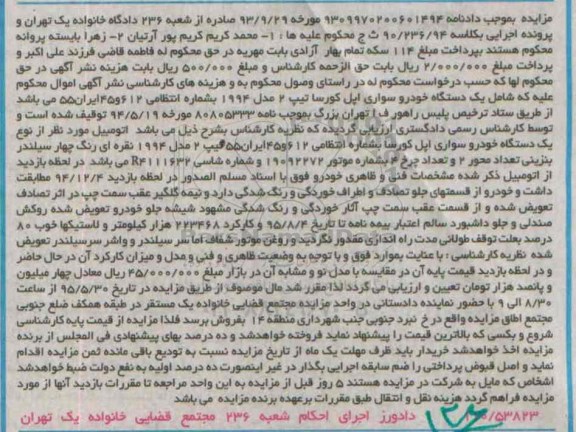 مزایده بموجب دادنامه ۹۳۰۹۹۷۰۲۰۰۶۰۱۴۹۴ مورخه ۹۳/۹/۲۹ صادره از شعبه ۲۳۶ دادگاه خانواده یک تهران و
پرونده اجرایی بکلاسه ۹۰/۲۳۶/۹۴ ث ج محکوم علیه ها : ۱- محمد کریم کریم پور آرتیان ۲- زهرا بایسته پروانه
محکوم هستند بپرداخت مبلغ ۱۱۴ سکه تمام بهار آزادی بابت مهریه در حق محکوم له فاطمه قاضی فرزند علی اکبر و
پرداخت مبلغ ۲/۰۰۰/۰۰۰ ریال بابت حق الزحمه کارشناس و مبلغ ۵۰۰/۰۰۰ ریال بابت هزینه نشر آگهی در حق
محکوم لها که حسب درخواست محکوم له در راستای وصول محکوم به و هزینه های کارشناسی نشر آگهی اموال محکوم
علیه که شامل یک دستگاه خودرو سواری اپل کورسا تیپ ۲ مدل ۱۹۹۴ بشماره انتظامی ۶۱۲و۴۵ایران۵۵ می باشد
از طریق ستاد ترخیص پلیس راهور ف ا تهران بزرگ بموجب نامه ۸۰۸۰۵۳۳۳ مورخ ۹۴/۵/۱۹ توقیف شده است و
توسط کارشناس رسمی دادگستری ارزیابی گردیده که نظریه کارشناس بشرح ذیل می باشد اتومبیل مورد نظر از نوع
یک دستگاه خودرو سواری اپل کورسا بشماره انتظامی ۶۱۲و۴۵ایران۵۵ تیپ ۲ مدل ۱۹۹۴ نقره ای رنگ چهار سیلندر
بنزینی تعداد محور ۲ و تعداد چرخ ۴ بشماره موتور ۱۹۰۹۲۲۷۲ و شماره شاسی R۴۱۱۱۶۳۲ می باشد در لحظه بازدید
از اتومبیل ذکر شده مشخصات فنی و ظاهری خودرو فوق با اسناد مسلم الصدور در لحظه بازدید ۹۴/۱۲/۴ مطابقت
داشت و خودرو از قسمتهای جلو تصادف و اطراف خوردگی و رنگ شدگی دارد و نیمه گلگیر عقب سمت چپ در اثر تصادف
تعویض شده و از قسمت عقب سمت چپ آثار خوردگی و رنگ شدگی مشهود شیشه جلو خودرو تعویض شده روکش
صندلی و جلو داشبورد سالم اعتبار بیمه نامه تا تاریخ ۹۵/۸/۴ و کارکرد ۲۲۳۴۶۸ هزار کیلومتر و لاستیکها خوب ۸۰
درصد بعلت توقف طولانی مدت راه اندازی مقدور نگردید و روغن موتور شفاف اما سر سیلندر و واشر سرسیلندر تعویض
شده نظریه کارشناسی : با عنایت بموارد فوق و با توجه به وضعیت ظاهری و فنی و مدل و میزان کارکرد آن در حال حاضر
و در لحظه بازدید قیمت پایه آن در مقایسه با مدل نو و مشابه آن در بازار مبلغ ۴۵/۰۰۰/۰۰۰ ریال معادل چهار میلیون
و پانصد هزار تومان تعیین و ارزیابی می گردد لذا مقرر شد مال موصوف از طریق مزایده در تاریخ ۹۵/۵/۳۰ از ساعت
۸/۳۰ الی ۹ با حضور نماینده دادستانی در واحد مزایده مجتمع قضایی خانواده یک مستقر در طبقه همکف ضلع جنوبی
مجتمع اطاق مزایده واقع در خ نبرد جنوبی جنب شهرداری منطقه ۱۴ بفروش برسد فلذا مزایده از قیمت پایه کارشناسی
شروع و بکسی که بالاترین قیمت را پیشنهاد نماید فروخته خواهدشد و ده درصد بهای پیشنهادی فی المجلس از برنده
مزایده اخذ خواهدشد خریدار باید ظرف مهلت یک ماه از تاریخ مزایده نسبت به تودیع باقی مانده ثمن مزایده اقدام
نماید و اصل قبوض پرداختی را ضم سابقه اجرایی بگذار در غیر اینصورت ده درصد اولیه به نفع دولت ضبط خواهدشد
اشخاص که مایل به شرکت در مزایده هستند ۵ روز قبل از مزایده به این واحد مراجعه تا مقررات بازدید آنها از مورد
مزایده فراهم گردد هزینه نقل و انتقال طبق مقررات برعهده برنده مزایده می باشد
/۵۳۸۲۳ دادورز اجرای احکام شعبه ۲۳۶ مجتمع قضایی خانواده یک تهران